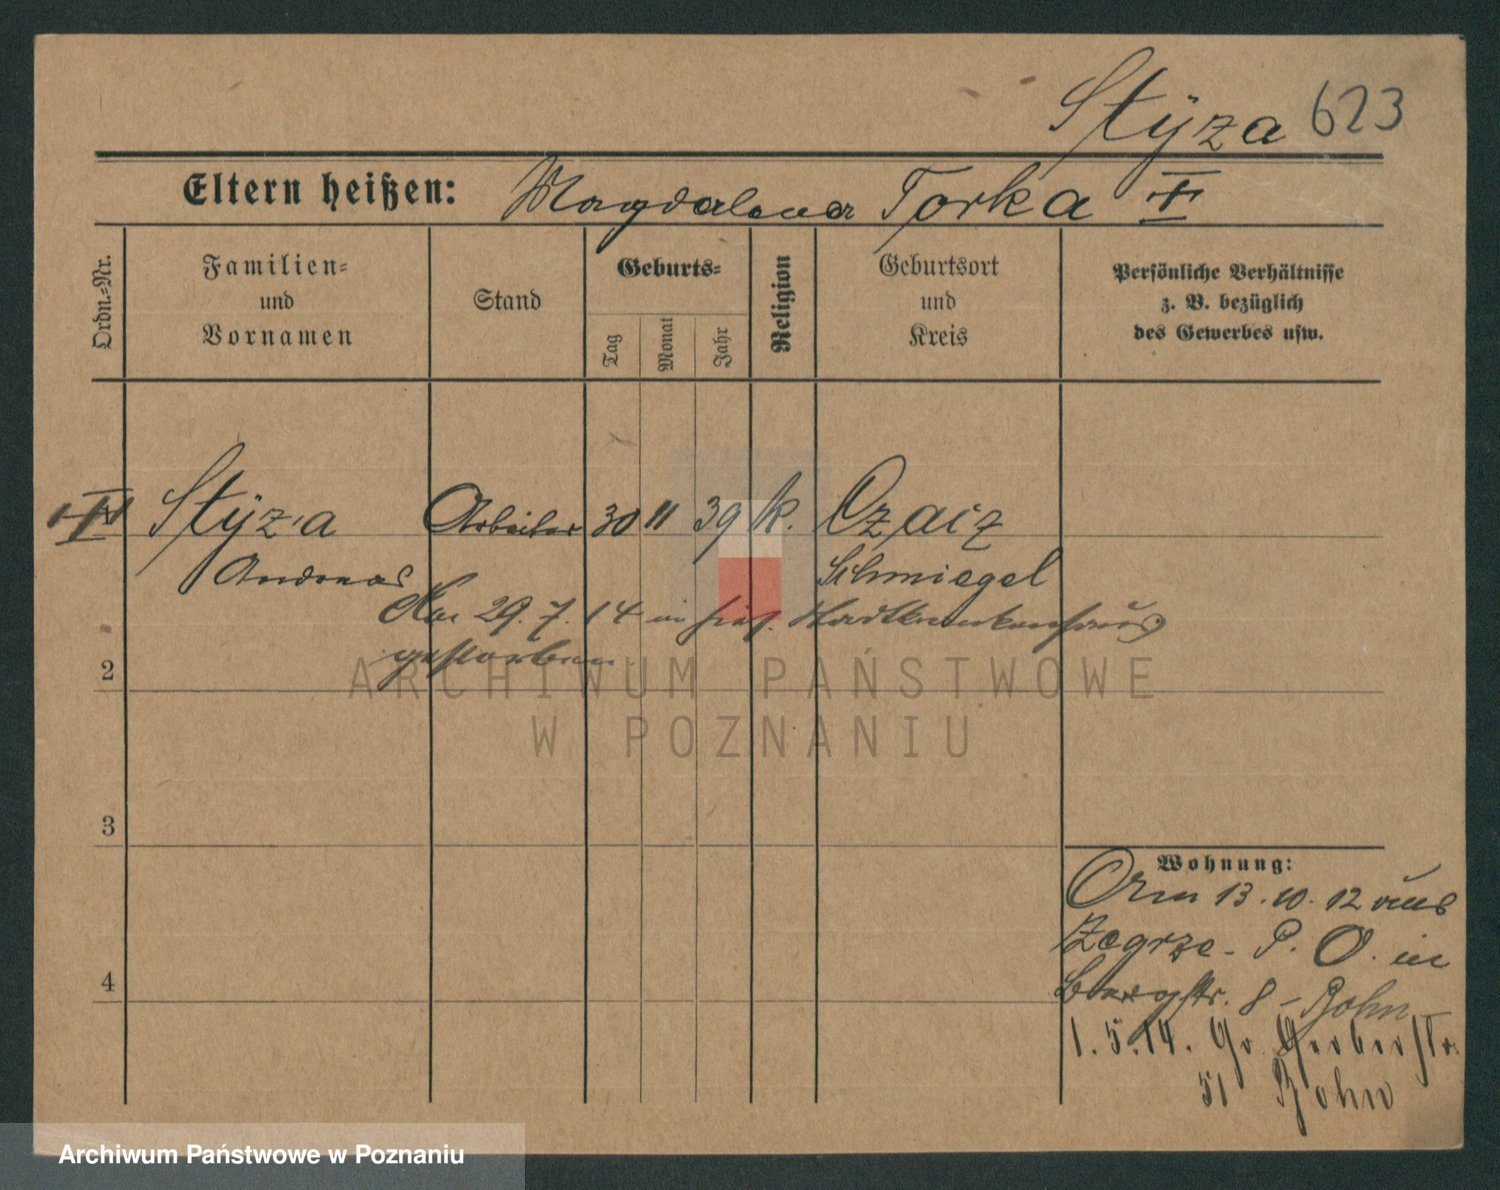 Stÿza 623
Eltern heißen: Magdalena Torka
Ordn.=Nr.
Familien=
und
Vornamen
Stand
Geburts=
Tag
Monat
Jahr
Religion
Geburtsort
und
Kreis
Persönliche Verhältnisse
z. B. bezüglich
des Gewerbes usw.
Stÿza Arbeiter 30 11 39 k. Czaiz
Andreas Schmiegel
Am 29.7.14 in hies. Stadtkrankenhaus
gestorben
2
3
4
Wohnung:
13.10.12 aus
Zegrze - P. O. in
Bergstr. 8 - Bohn
1.5.14. Gr. Gerberstr.
51 Bohn
ARCHIWUM PAŃSTWOWE
W POZNANIU
Archiwum Państwowe w Poznaniu